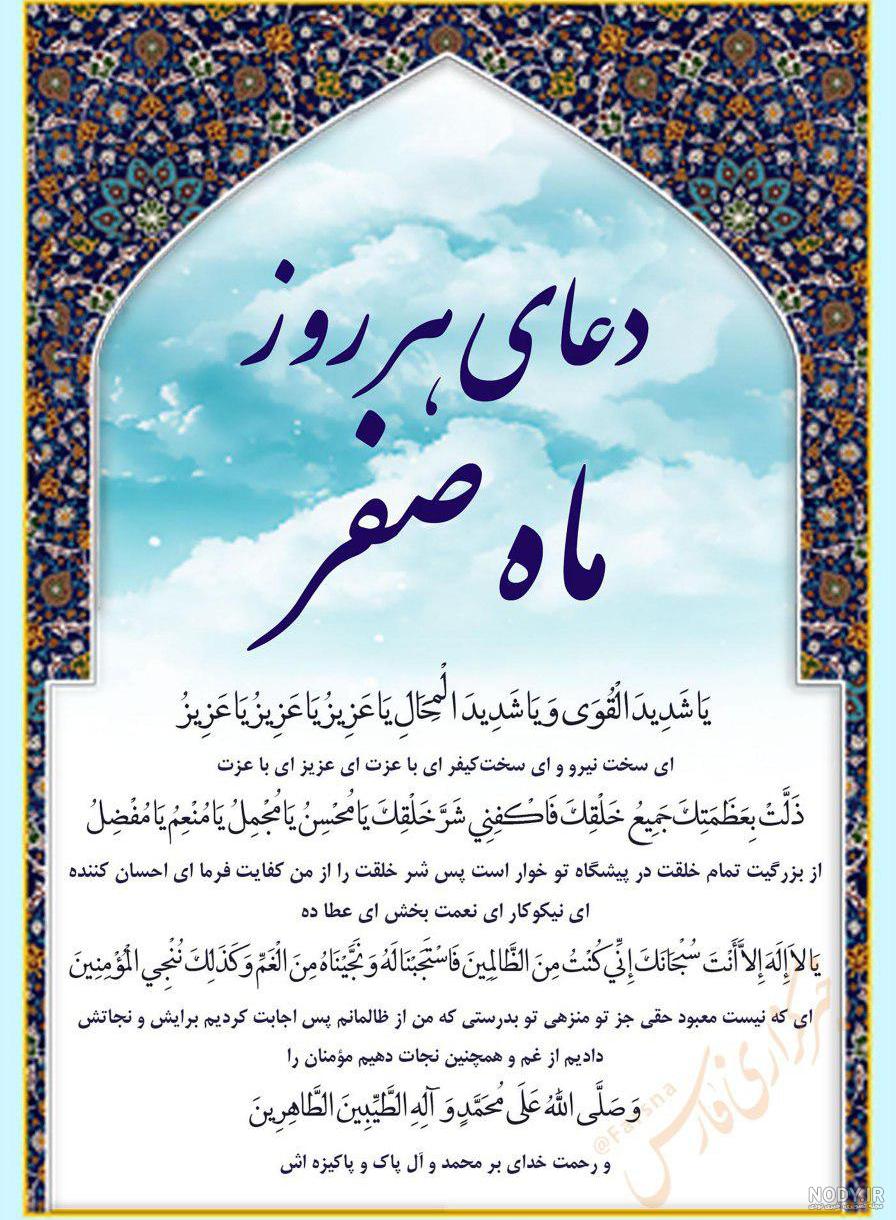 دعای هر روز
ماه صفر
يَا شَدِيدَ الْقُوَى وَ يَا شَدِيدَ الْمِحَالِ يَا عَزِيزُ يَا عَزِيزُ يَا عَزِيزُ
ای سخت نیرو و ای سخت‌کیفر ای با عزت ای عزیز ای با عزت
ذَلَّتْ بِعَظَمَتِكَ جَمِيعُ خَلْقِكَ فَاكْفِنِي شَرَّ خَلْقِكَ يَا مُحْسِنُ يَا مُجْمِلُ يَا مُنْعِمُ يَا مُفْضِلُ
از بزرگیت تمام خلقت در پیشگاه تو خوار است پس شر خلقت را از من کفایت فرما ای احسان کننده
ای نیکوکار ای نعمت بخش ای عطا ده
يَا لاَ إِلَهَ إِلاَّ أَنْتَ سُبْحَانَكَ إِنِّي كُنْتُ مِنَ الظَّالِمِينَ فَاسْتَجَبْنَا لَهُ وَ نَجَّيْنَاهُ مِنَ الْغَمِّ وَ كَذَلِكَ نُنْجِي الْمُؤْمِنِينَ
ای که نیست معبود حقی جز تو منزهی تو بدرستی که من از ظالمانم پس اجابت کردیم برایش و نجاتش
دادیم از غم و همچنین نجات دهیم مؤمنان را
وَ صَلَّى اللَّهُ عَلَى مُحَمَّدٍ وَ آلِهِ الطَّيِّبِينَ الطَّاهِرِينَ
و رحمت خدای بر محمد و آل پاک و پاکیزه اش
خبرگزاری فارس
@Farsna
NODY.IR